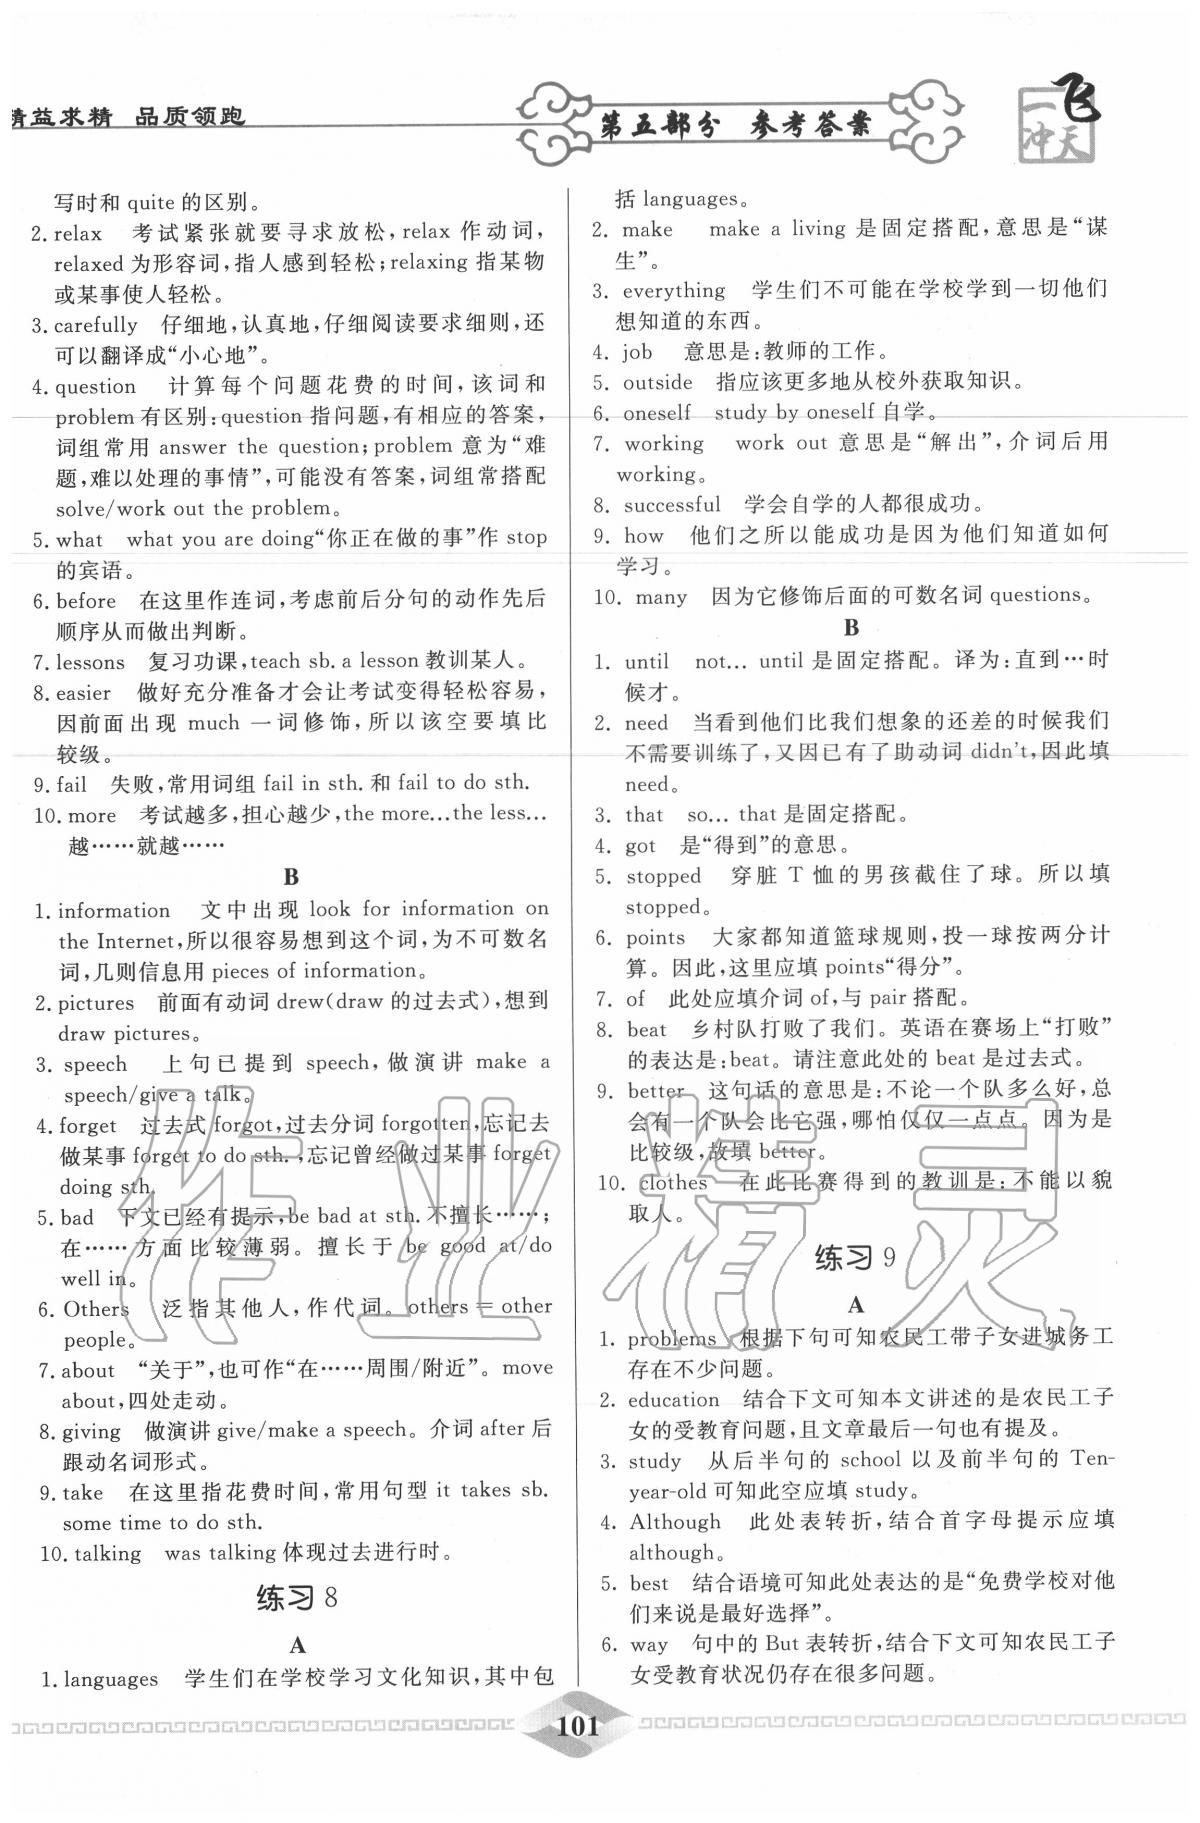 精益求精 品质领跑
第五部分 参考答案
一飞冲天
写时和 quite 的区别。
2. relax 考试紧张就要寻求放松,relax 作动词,
relaxed 为形容词,指人感到轻松;relaxing 指某物
或某事使人轻松。
3. carefully 仔细地,认真地,仔细阅读要求细则,还
可以翻译成“小心地”。
4. question 计算每个问题花费的时间,该词和
problem 有区别:question 指问题,有相应的答案,
词组常用 answer the question;problem 意为“难
题,难以处理的事情”,可能没有答案,词组常搭配
solve/work out the problem。
5. what what you are doing“你正在做的事”作 stop
的宾语。
6. before 在这里作连词,考虑前后分句的动作先后
顺序从而做出判断。
7. lessons 复习功课,teach sb. a lesson 教训某人。
8. easier 做好充分准备才会让考试变得轻松容易,
因前面出现 much 一词修饰,所以该空要填比
较级。
9. fail 失败,常用词组 fail in sth. 和 fail to do sth.
10. more 考试越多,担心越少,the more...the less...
越……就越……
B
1. information 文中出现 look for information on
the Internet,所以很容易想到这个词,为不可数名
词,几则信息用 pieces of information。
2. pictures 前面有动词 drew(draw 的过去式),想到
draw pictures。
3. speech 上句已提到 speech,做演讲 make a
speech/give a talk。
4. forget 过去式 forgot,过去分词 forgotten,忘记去
做某事 forget to do sth.,忘记曾经做过某事 forget
doing sth.
5. bad 下文已经有提示,be bad at sth. 不擅长……;
在……方面比较薄弱。擅长于 be good at/do
well in。
6. Others 泛指其他人,作代词。others = other
people。
7. about “关于”,也可作“在……周围/附近”。move
about,四处走动。
8. giving 做演讲 give/make a speech。介词 after 后
跟动名词形式。
9. take 在这里指花费时间,常用句型 it takes sb.
some time to do sth.
10. talking was talking 体现过去进行时。
练习 8
A
1. languages 学生们在学校学习文化知识,其中包
括 languages。
2. make make a living 是固定搭配,意思是“谋
生”。
3. everything 学生们不可能在学校学到一切他们
想知道的东西。
4. job 意思是:教师的工作。
5. outside 指应该更多地从校外获取知识。
6. oneself study by oneself 自学。
7. working work out 意思是“解出”,介词后用
working。
8. successful 学会自学的人都很成功。
9. how 他们之所以能成功是因为他们知道如何
学习。
10. many 因为它修饰后面的可数名词 questions。
B
1. until not... until 是固定搭配。译为:直到…时
候才。
2. need 当看到他们比我们想象的还差的时候我们
不需要训练了,又因已有了助动词 didn't,因此填
need。
3. that so... that 是固定搭配。
4. got 是“得到”的意思。
5. stopped 穿脏 T 恤的男孩截住了球。所以填
stopped。
6. points 大家都知道篮球规则,投一球按两分计
算。因此,这里应填 points“得分”。
7. of 此处应填介词 of,与 pair 搭配。
8. beat 乡村队打败了我们。英语在赛场上“打败”
的表达是:beat。请注意此处的 beat 是过去式。
9. better 这句话的意思是:不论一个队多么好,总
会有一个队会比它强,哪怕仅仅一点点。因为是
比较级,故填 better。
10. clothes 在此比赛得到的教训是:不能以貌
取人。
练习 9
A
1. problems 根据下句可知农民工带子女进城务工
存在不少问题。
2. education 结合下文可知本文讲述的是农民工子
女的受教育问题,且文章最后一句也有提及。
3. study 从后半句的 school 以及前半句的 Ten-
year-old 可知此空应填 study。
4. Although 此处表转折,结合首字母提示应填
although。
5. best 结合语境可知此处表达的是“免费学校对他
们来说是最好选择”。
6. way 句中的 But 表转折,结合下文可知农民工子
女受教育状况仍存在很多问题。
作业精灵
101